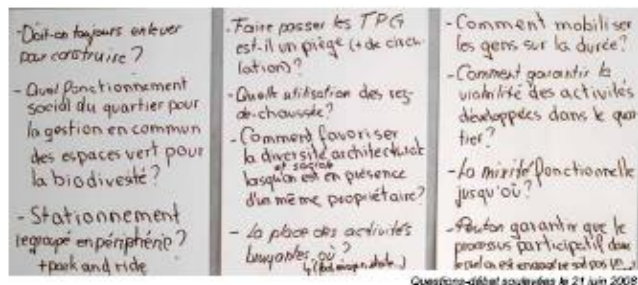 - Doit-on toujours enlever
pour construire ?
- Quel fonctionnement
social du quartier pour
la gestion en commun
des espaces vert pour
la biodiversité ?
- Stationnement
regroupé en périphérie ?
+ park and ride
- Faire passer les TPG
est-il un piège (+ de circu-
lation) ?
- Quelle utilisation des rez-
de-chaussée ?
- Comment favoriser
la diversité architecturale
et sociale
lorsqu'on est en présence
d'un même propriétaire ?
- La place des activités
bruyantes, où ?
- Comment mobiliser
les gens sur la durée ?
- Comment garantir la
viabilité des activités
développées dans le quar
tier ?
- La mixité fonctionnelle
jusqu'où ?
- Peut-on garantir que le
processus participatif dans
Questions-débat soulevées le 21 juin 2008